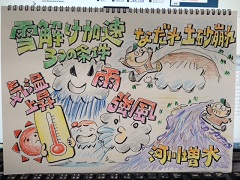 雪解け加速
3つの条件
なだれ 土砂崩れ
気温
上昇
雨
強風
河川増水